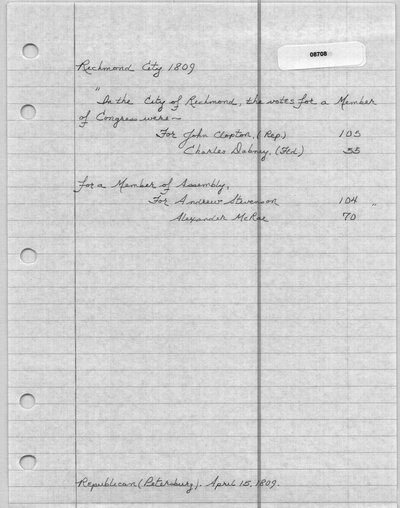 08708
Richmond City 1809
"In the City of Richmond, the votes for a Member
of Congress were—
For John Clopton, (Rep.) 105
Charles Dabney, (Fed) 55
For a Member of Assembly,
For Andrew Stevenson 104 "
Alexander McRae 70
Republican (Petersburg). April 15, 1809.